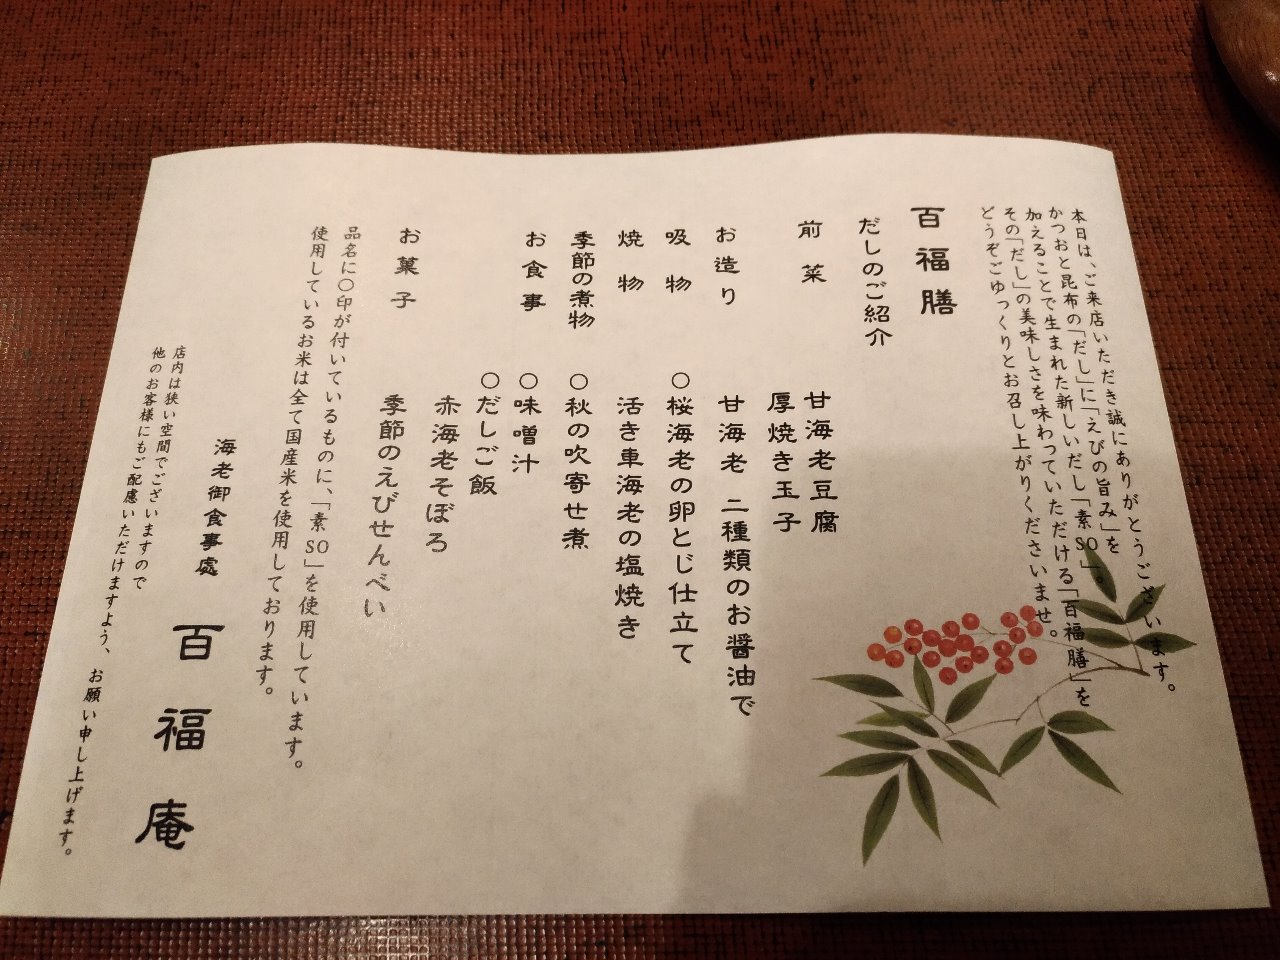 本日は、ご来店いただき誠にありがとうございます。
かつおと昆布の「だし」に「えびの旨み」を
加えることで生まれた新しいだし「素 SO」。
その「だし」の美味しさを味わっていただける「百福膳」を
どうぞごゆっくりとお召し上がりくださいませ。
百福膳
だしのご紹介
前菜 甘海老豆腐
厚焼き玉子
お造り 甘海老 二種類のお醤油で
吸物 ○桜海老の卵とじ仕立て
焼物 活き車海老の塩焼き
季節の煮物 ○秋の吹寄せ煮
お食事 ○味噌汁
○だしご飯
赤海老そぼろ
お菓子 季節のえびせんべい
品名に○印が付いているものに、「素 SO」を使用しています。
使用しているお米は全て国産米を使用しております。
海老御食事處 百福庵
店内は狭い空間でございますので
他のお客様にもご配慮いただけますよう、お願い申し上げます。